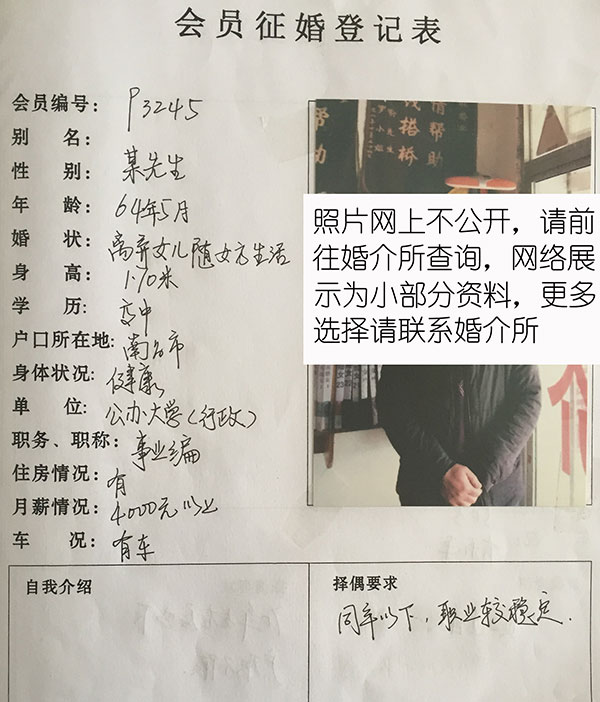 会员征婚登记表
会员编号: P3245
别 名:
性 别: 某先生
年 龄: 64年5月
婚 状: 离异女儿随女方生活
身 高: 1.70米
学 历: 高中
户口所在地: 南昌市
身体状况: 健康
单 位: 公办大学(行政)
职务、职称: 事业编
住房情况: 有
月薪情况: 4000元以上
车 况: 有车
搭桥
请帮助
帮助
照片网上不公开，请前
往婚介所查询，网络展
示为小部分资料，更多
选择请联系婚介所
自我介绍
择偶要求
同年以下，职业较稳定.